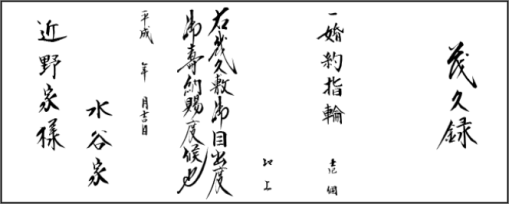 茂久録
一 婚約指輪 壱個
以上
右幾久敷御目出度
御寿納賜度候也
平成 年 月吉日
水谷家
近野家様